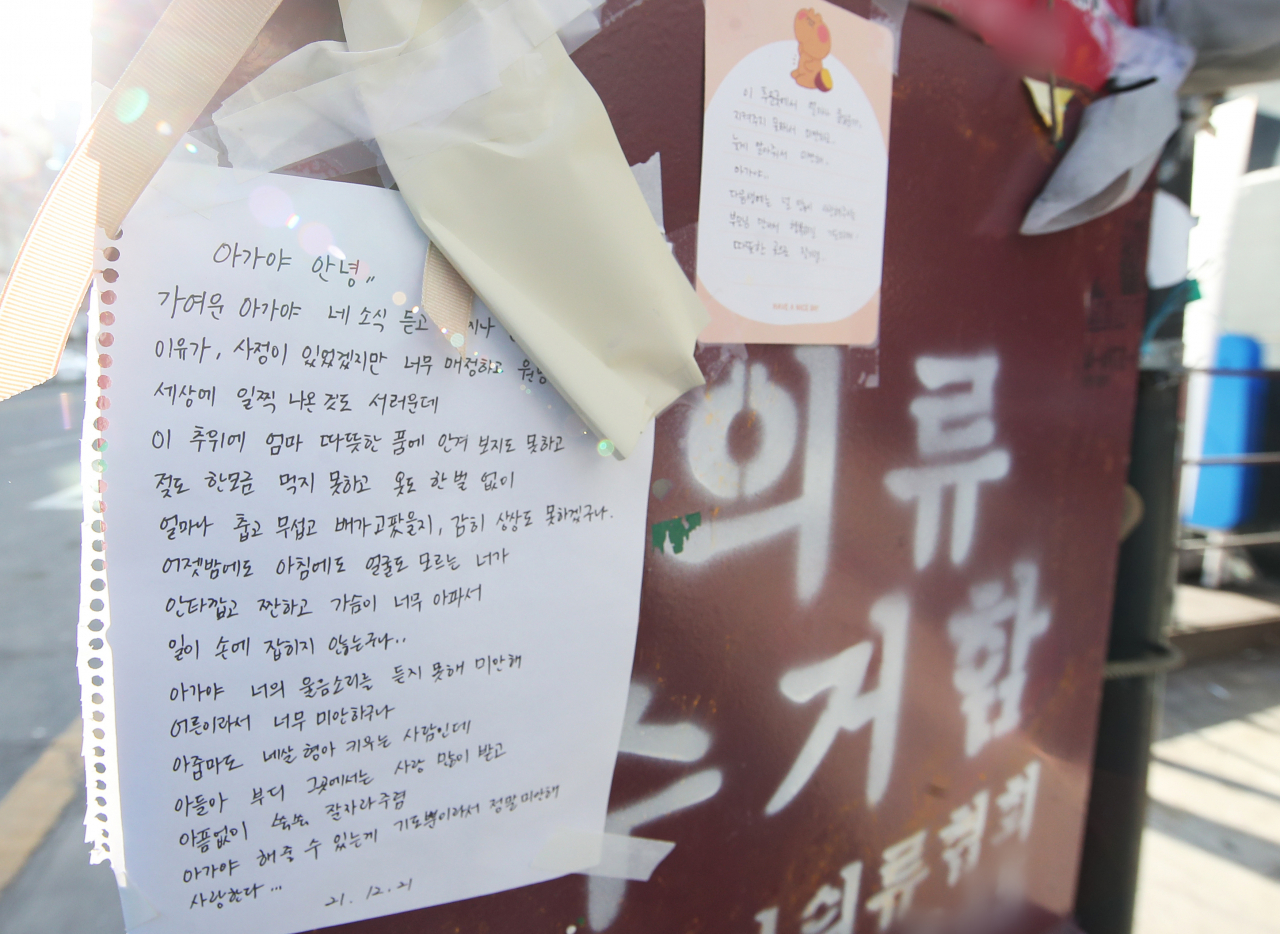 아가야 안녕,,
가여운 아가야 네 소식 듣고
이유가, 사정이 있었겠지만 너무 매정하고
세상에 일찍 나온 것도 서러운데
이 추위에 엄마 따뜻한 품에 안겨 보지도 못하고
젖도 한모금 먹지 못하고 옷도 한 벌 없이
얼마나 춥고 무섭고 배가고팠을지, 감히 상상도 못하겠구나.
어젯밤에도 아침에도 얼굴도 모르는 너가
안타깝고 짠하고 가슴이 너무 아파서
일이 손에 잡히지 않는구나..
아가야 너의 울음소리를 듣지 못해 미안해
어른이라서 너무 미안하구나
아줌마도 네살 형아 키우는 사람인데
아들아 부디 그곳에서는 사랑 많이 받고
아픔없이 쑥쑥 잘자라주렴
아가야 해줄 수 있는게 기도뿐이라서 정말 미안해
사랑한다...
21. 12. 21
이
지켜주지 못해서 미안하고..
늦게 알아줘서 미안해.
아가야..
다음생에는
따뜻한
HAVE A NICE DAY
의 류
거 함
의류